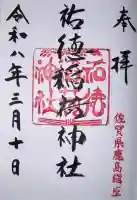 奉拝
佐賀県鹿島鎮座
祐徳稲荷神社
祐徳
神社
令和八年三月十日